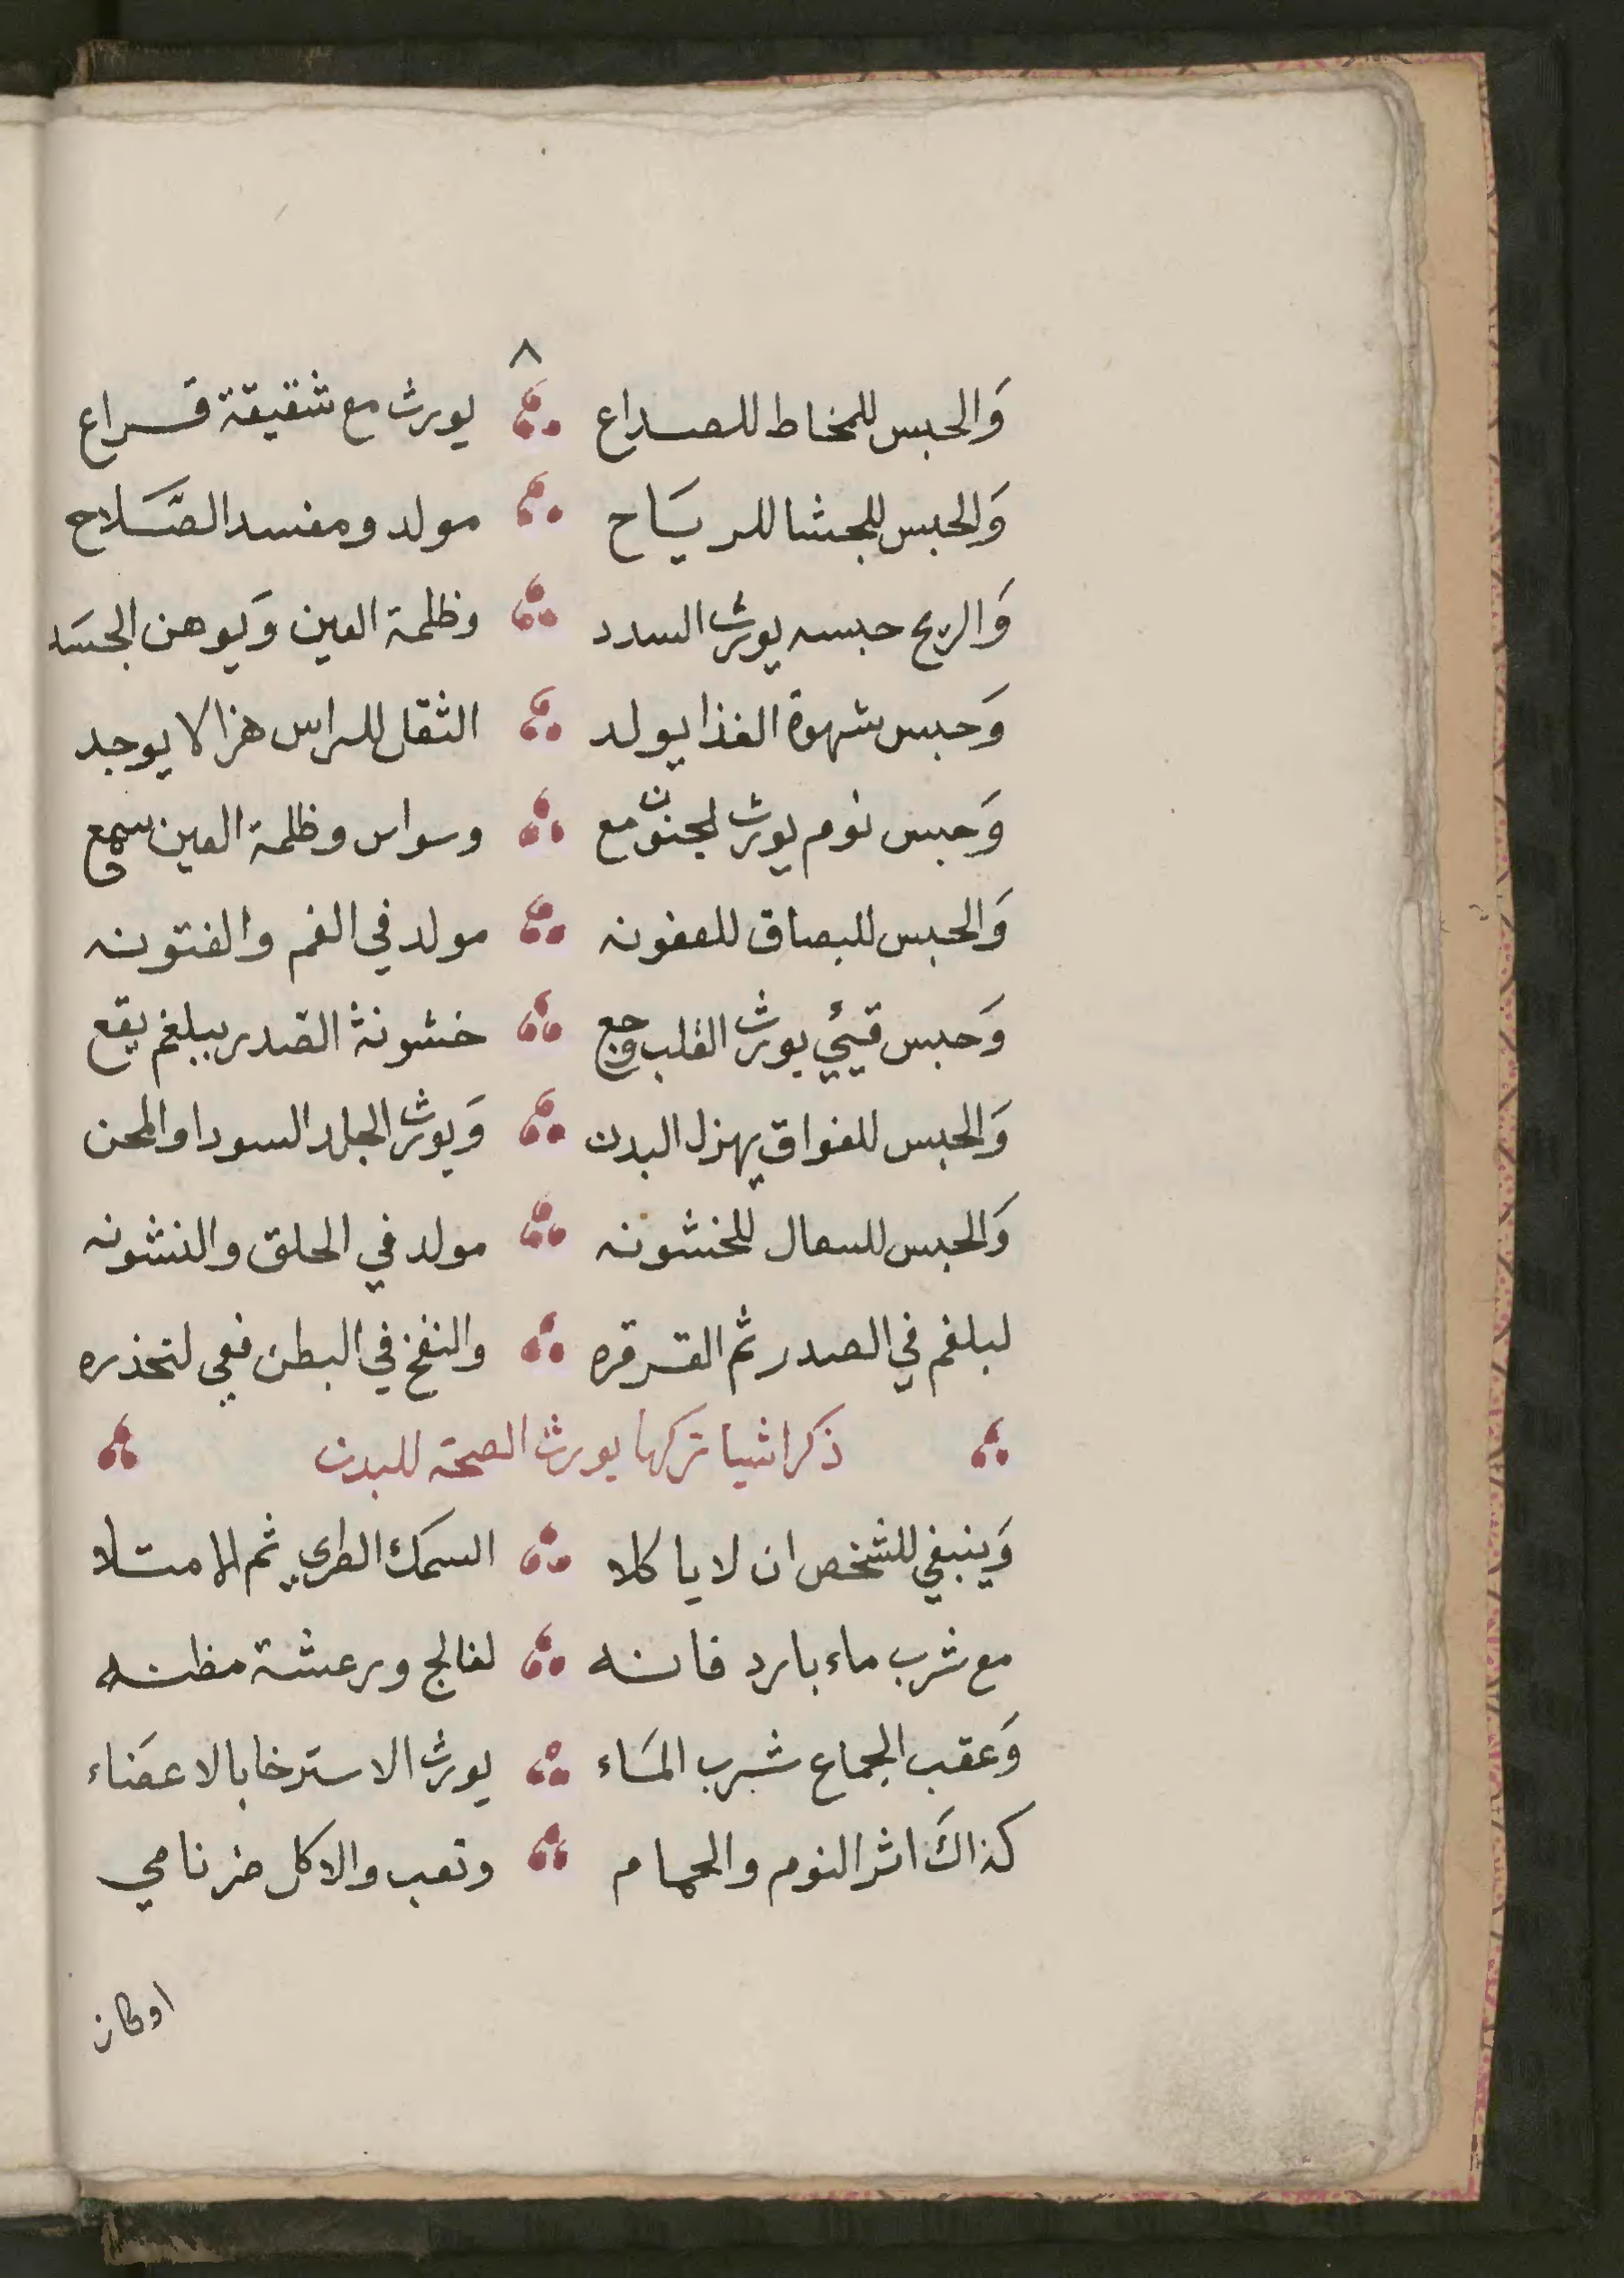 ٨
وَالحبس للمخاط للصداع يورث مع شقيقة قراع
وَالحبس للجشا للريَاح مولد ومفسد الصَّلَاح
وَالريح حبسه يورث السدد وظلمة العين وَيوهن الجسَد
وَحبس شهوة الغذا يولد الثقل للراس هزالا يوجد
وَحبس نوم يورث لجنون مع وسواس وظلمة العين سمع
وَالحبس للبصاق للعفونه مولد في الفم والفتونه
وَحبس قيئي يورث القلب وجع خشونة الصدر ببلغم يقع
وَالحبس للفواق يهزل البدن وَيورث الجلد السودا والمحن
وَالحبس للسعال للخشونه مولد في الحلق والنشونه
لبلغم في الصدر ثم القرقره والنفخ في البطن فعي لتحذره
ذكر اشيا تركها يورث الصحة للبدن
وَينبغي للشخص ان لا ياكلا السمك الطري ثم الامتلا
مع شرب ماء بارد فانه لفالج ورعشة مظنه
وَعقب الجماع شرب المَاء يورث الاسترخا بالاعضَاء
كذاكَ اثر النوم والحمام وتعب والاكل ضر نامي
اوكان